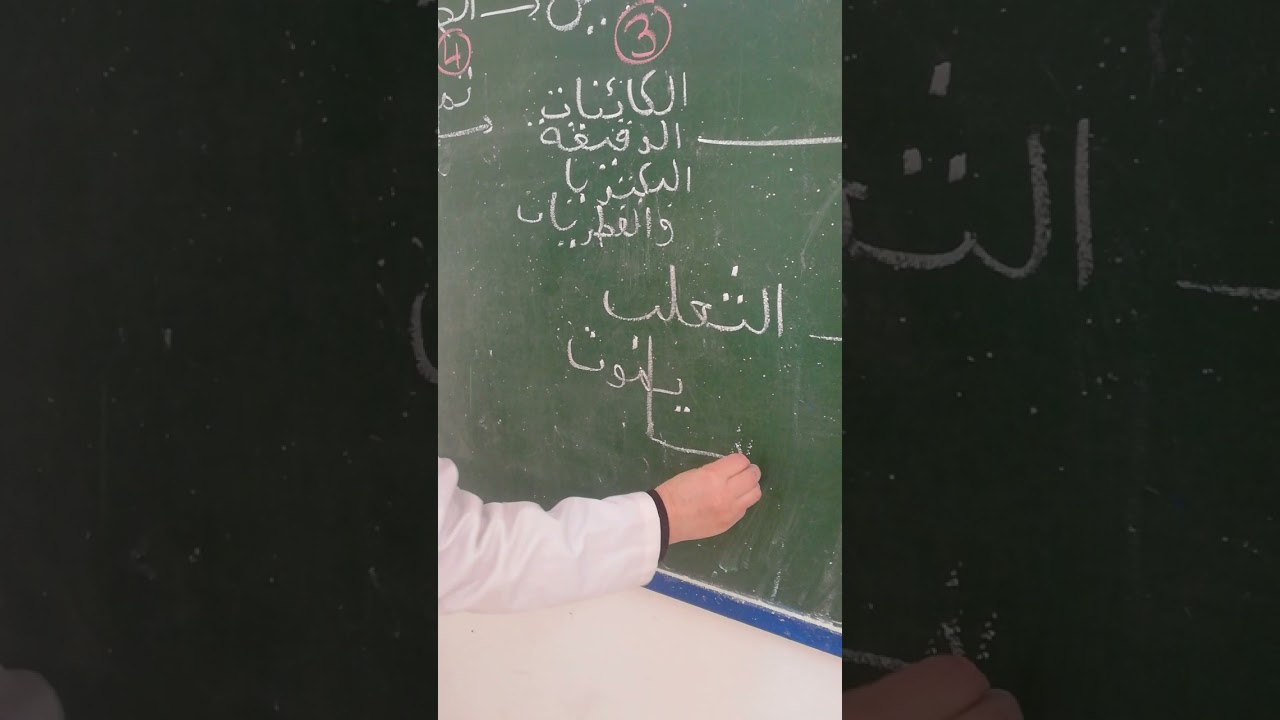 3
4
الكائنات
الدقيقة
البكتريا
والفطريات
الثعلب
يموت